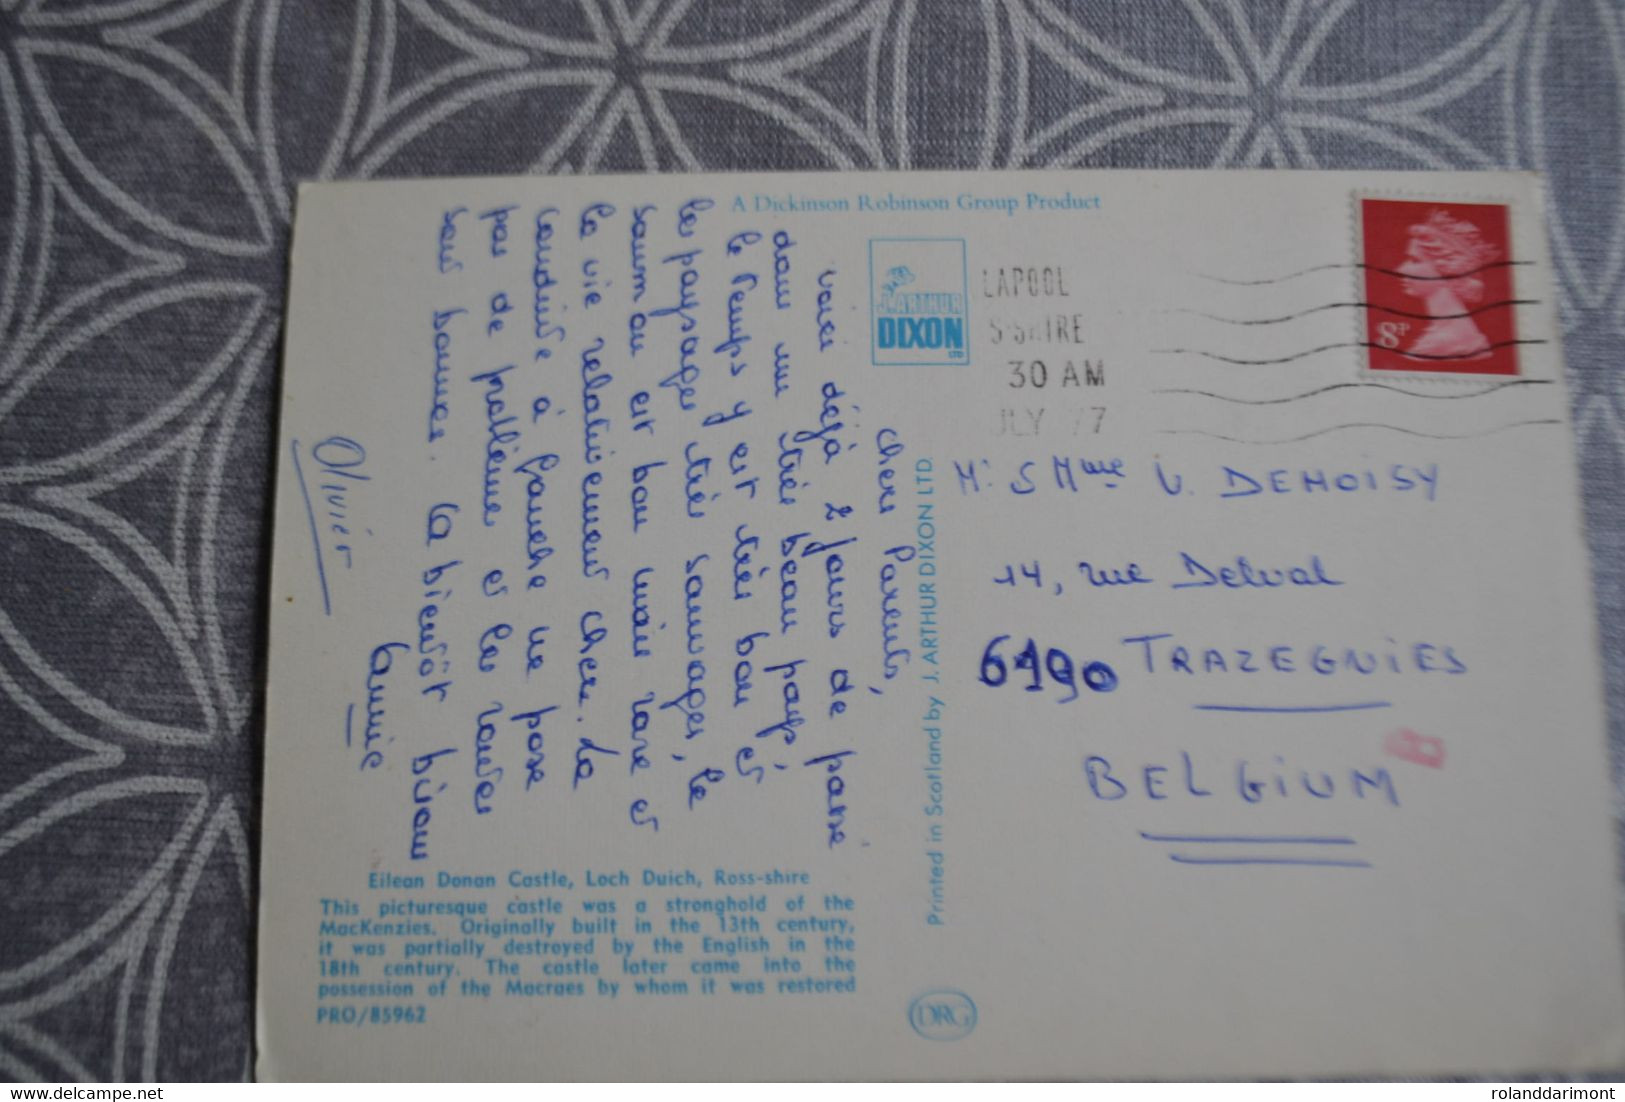 A Dickinson Robinson Group Product
J. ARTHUR
DIXON
LTD
LAPOOL
S-SHIRE
30 AM
JLY 77
8P
Chers Parents,
Voici déjà 2 jours de passé
dans un très beau pays,
le temps y est très bon et
les paysages très sauvages, le
saumon est bon mais rare et
la vie relativement chère. La
conduite à gauche ne pose
pas de problème et les routes
sont bonnes. A bientôt bisou
Annie
Olivier
Mr & Mme V. DEMOISY
14, rue Delval
6190 TRAZEGNIES
BELGIUM
Printed in Scotland by J. ARTHUR DIXON LTD.
Eilean Donan Castle, Loch Duich, Ross-shire
This picturesque castle was a stronghold of the
MacKenzies. Originally built in the 13th century,
it was partially destroyed by the English in the
18th century. The castle later came into the
possession of the Macraes by whom it was restored
PRO/85962
DRG
delcampe.net
rolanddarimont